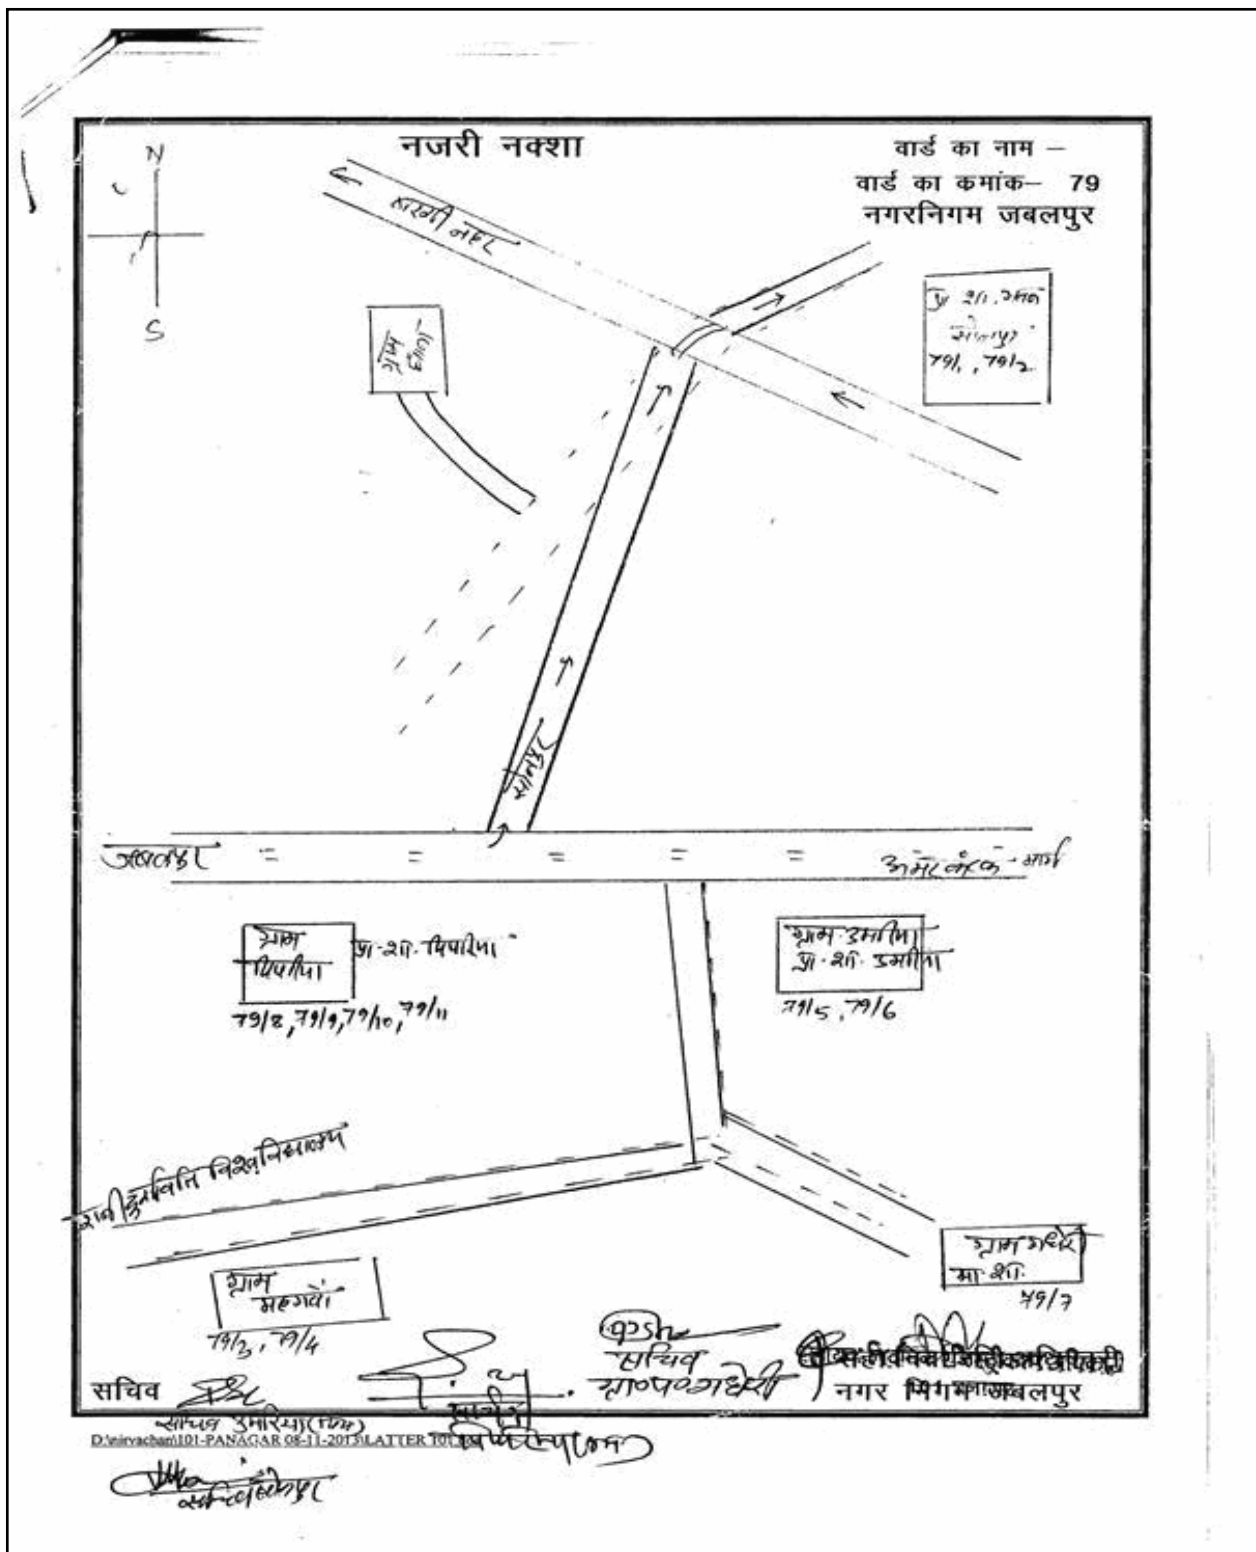 नजरी नक्शा
वार्ड का नाम –
वार्ड का कमांक– 79
नगरनिगम जबलपुर
N
S
बरगी नहर
प्रा. शा. भवन
सोनपुर
79/1, 79/2
सोनपुर
जबलपुर
अमरकंटक मार्ग
ग्राम
पिपरिया
प्रा. शा. पिपरिया
79/8, 79/9, 79/10, 79/11
ग्राम उमरिया
प्रा. शा. उमरिया
79/5, 79/6
रानी दुर्गावति विश्वविद्यालय
ग्राम
महगवाँ
79/3, 79/4
ग्राम गधेरी
मा. शा.
79/7
सचिव
सचिव
ग्रा०प० गधेरी
नगर निगम जबलपुर
सचिव उमरिया
D:\nirvachan\101-PANAGAR 08-11-2013\LATTER 101
सचिव
सचिव सोनपुर